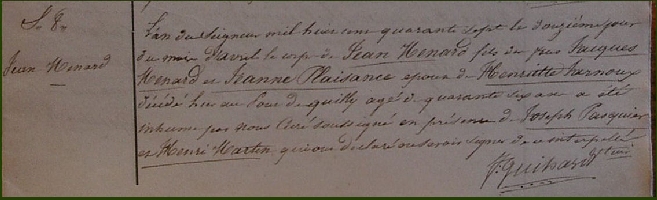 S. 8.
Jean Henard
L'an du Seigneur mil huit cent quarante sept le douzième jour
du mois d'avril le corps de Jean Henard fils de feu Jacques
Henard et Jeanne Plaisance époux de Henriette
décédé hier au de quilly agé de quarante six ans a été
inhumé par nous Curé soussigné en présence de Joseph Pasquier
et Henri Martin qui ont déclaré ne savoir signer de ce interpellé
J. Guihard